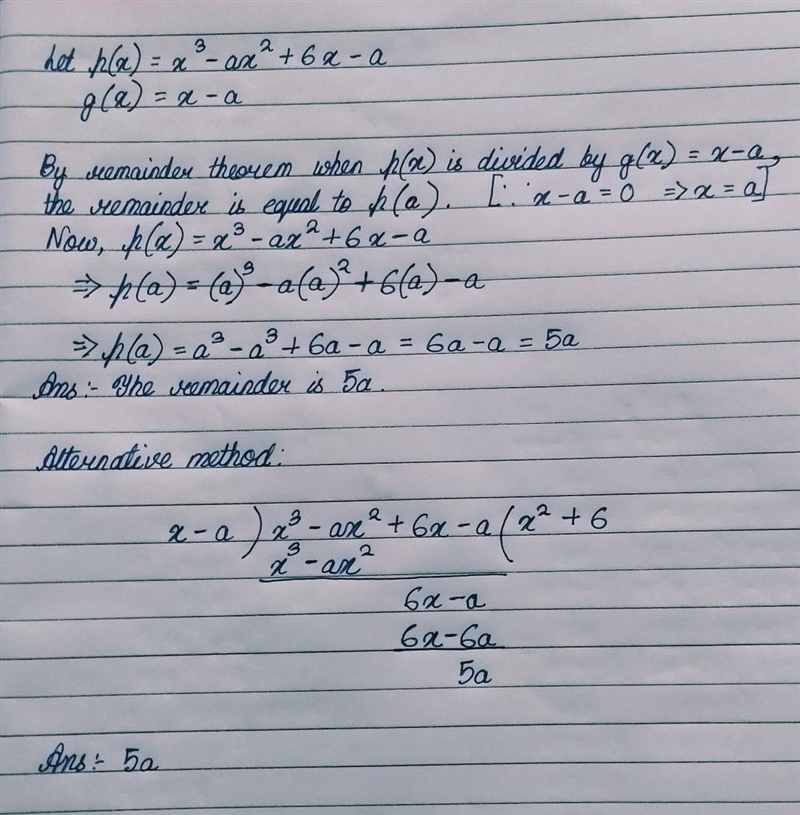 Let p(x) = x³ - ax² + 6x - a
g(x) = x - a
By remainder theorem when p(x) is divided by g(x) = x-a,
the remainder is equal to p(a). [∵ x-a = 0 ⇒ x = a]
Now, p(x) = x³ - ax² + 6x - a
⇒ p(a) = (a)³ - a(a)² + 6(a) - a
⇒ p(a) = a³ - a³ + 6a - a = 6a - a = 5a
Ans :- The remainder is 5a.
Alternative method:
x - a ) x³ - ax² + 6x - a ( x² + 6
x³ - ax²
6x - a
6x - 6a
5a
Ans :- 5a